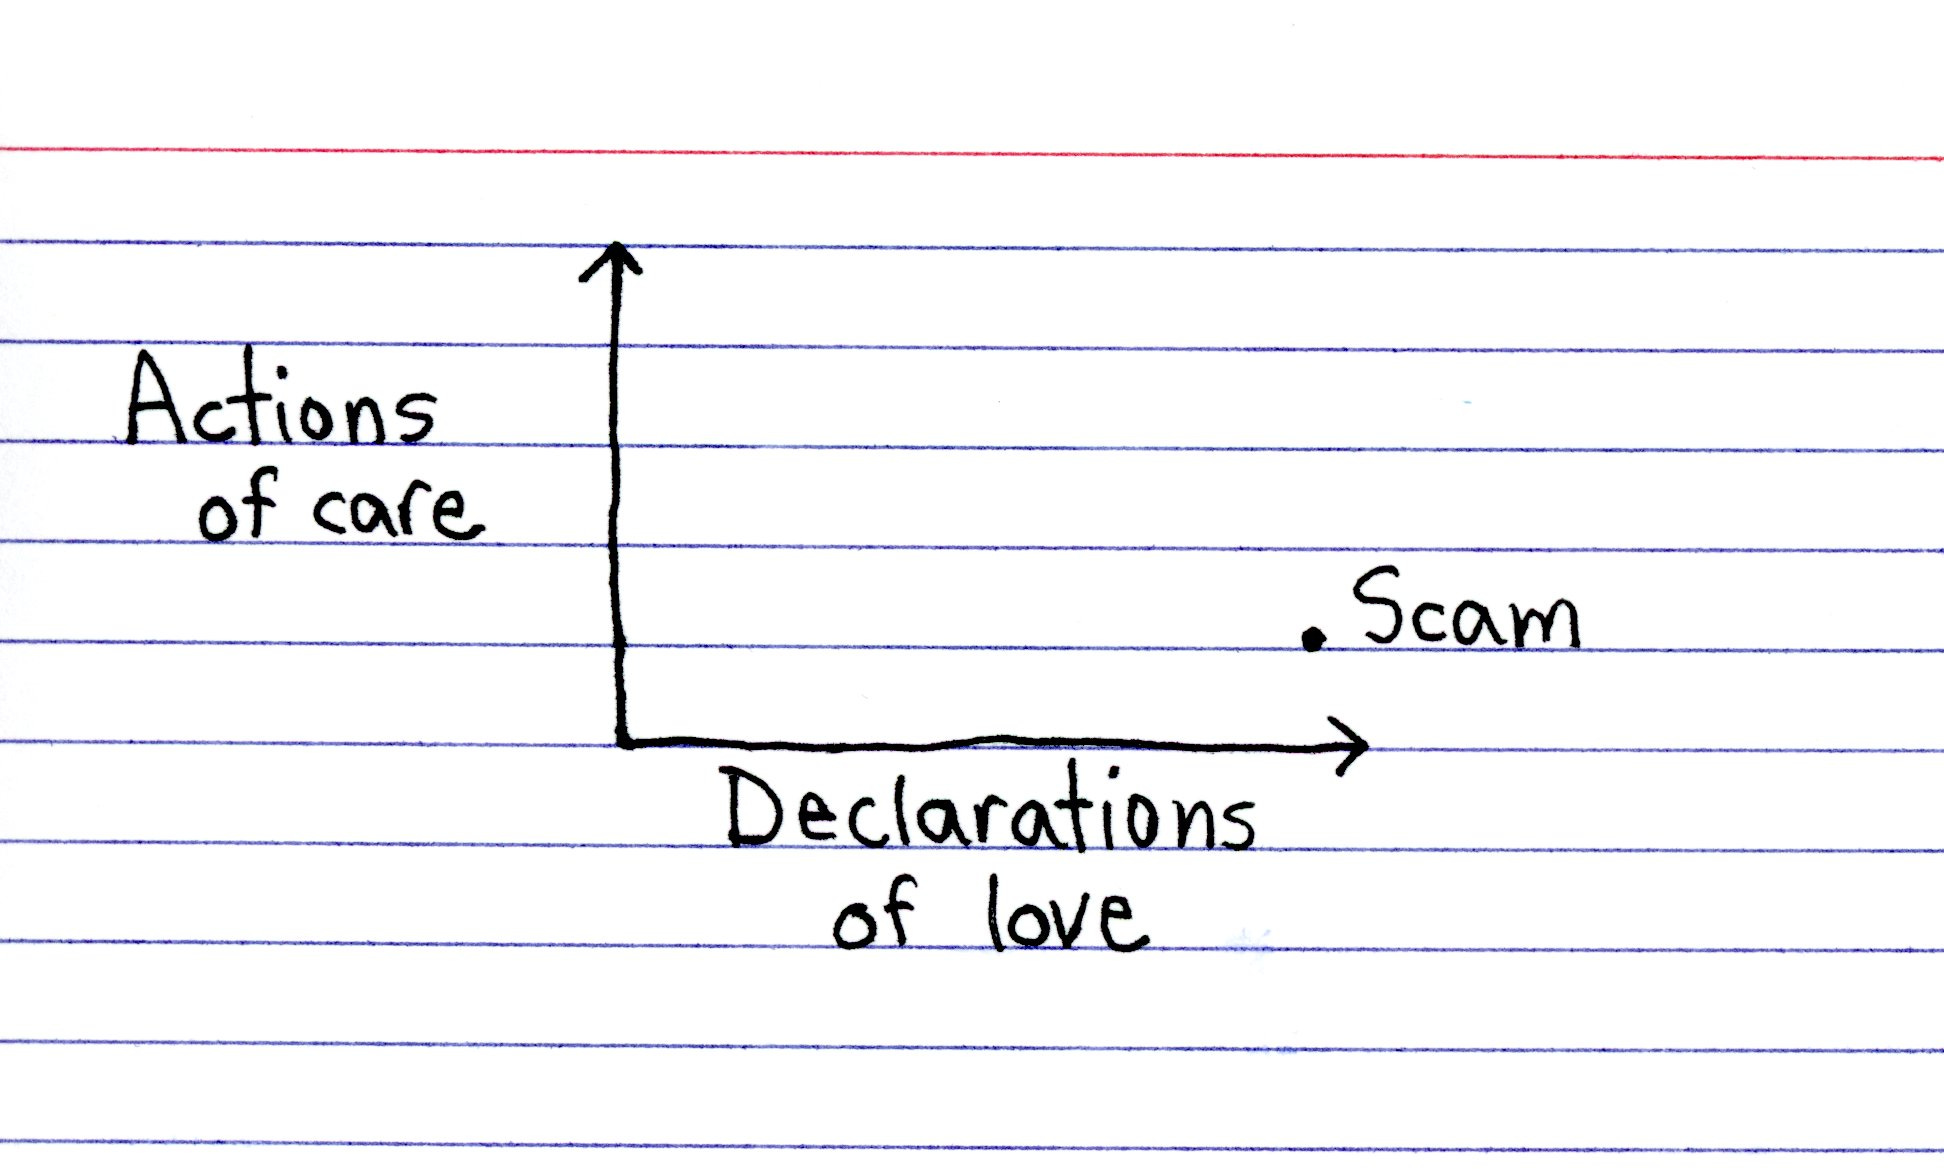 Actions
of care
Scam
Declarations
of love